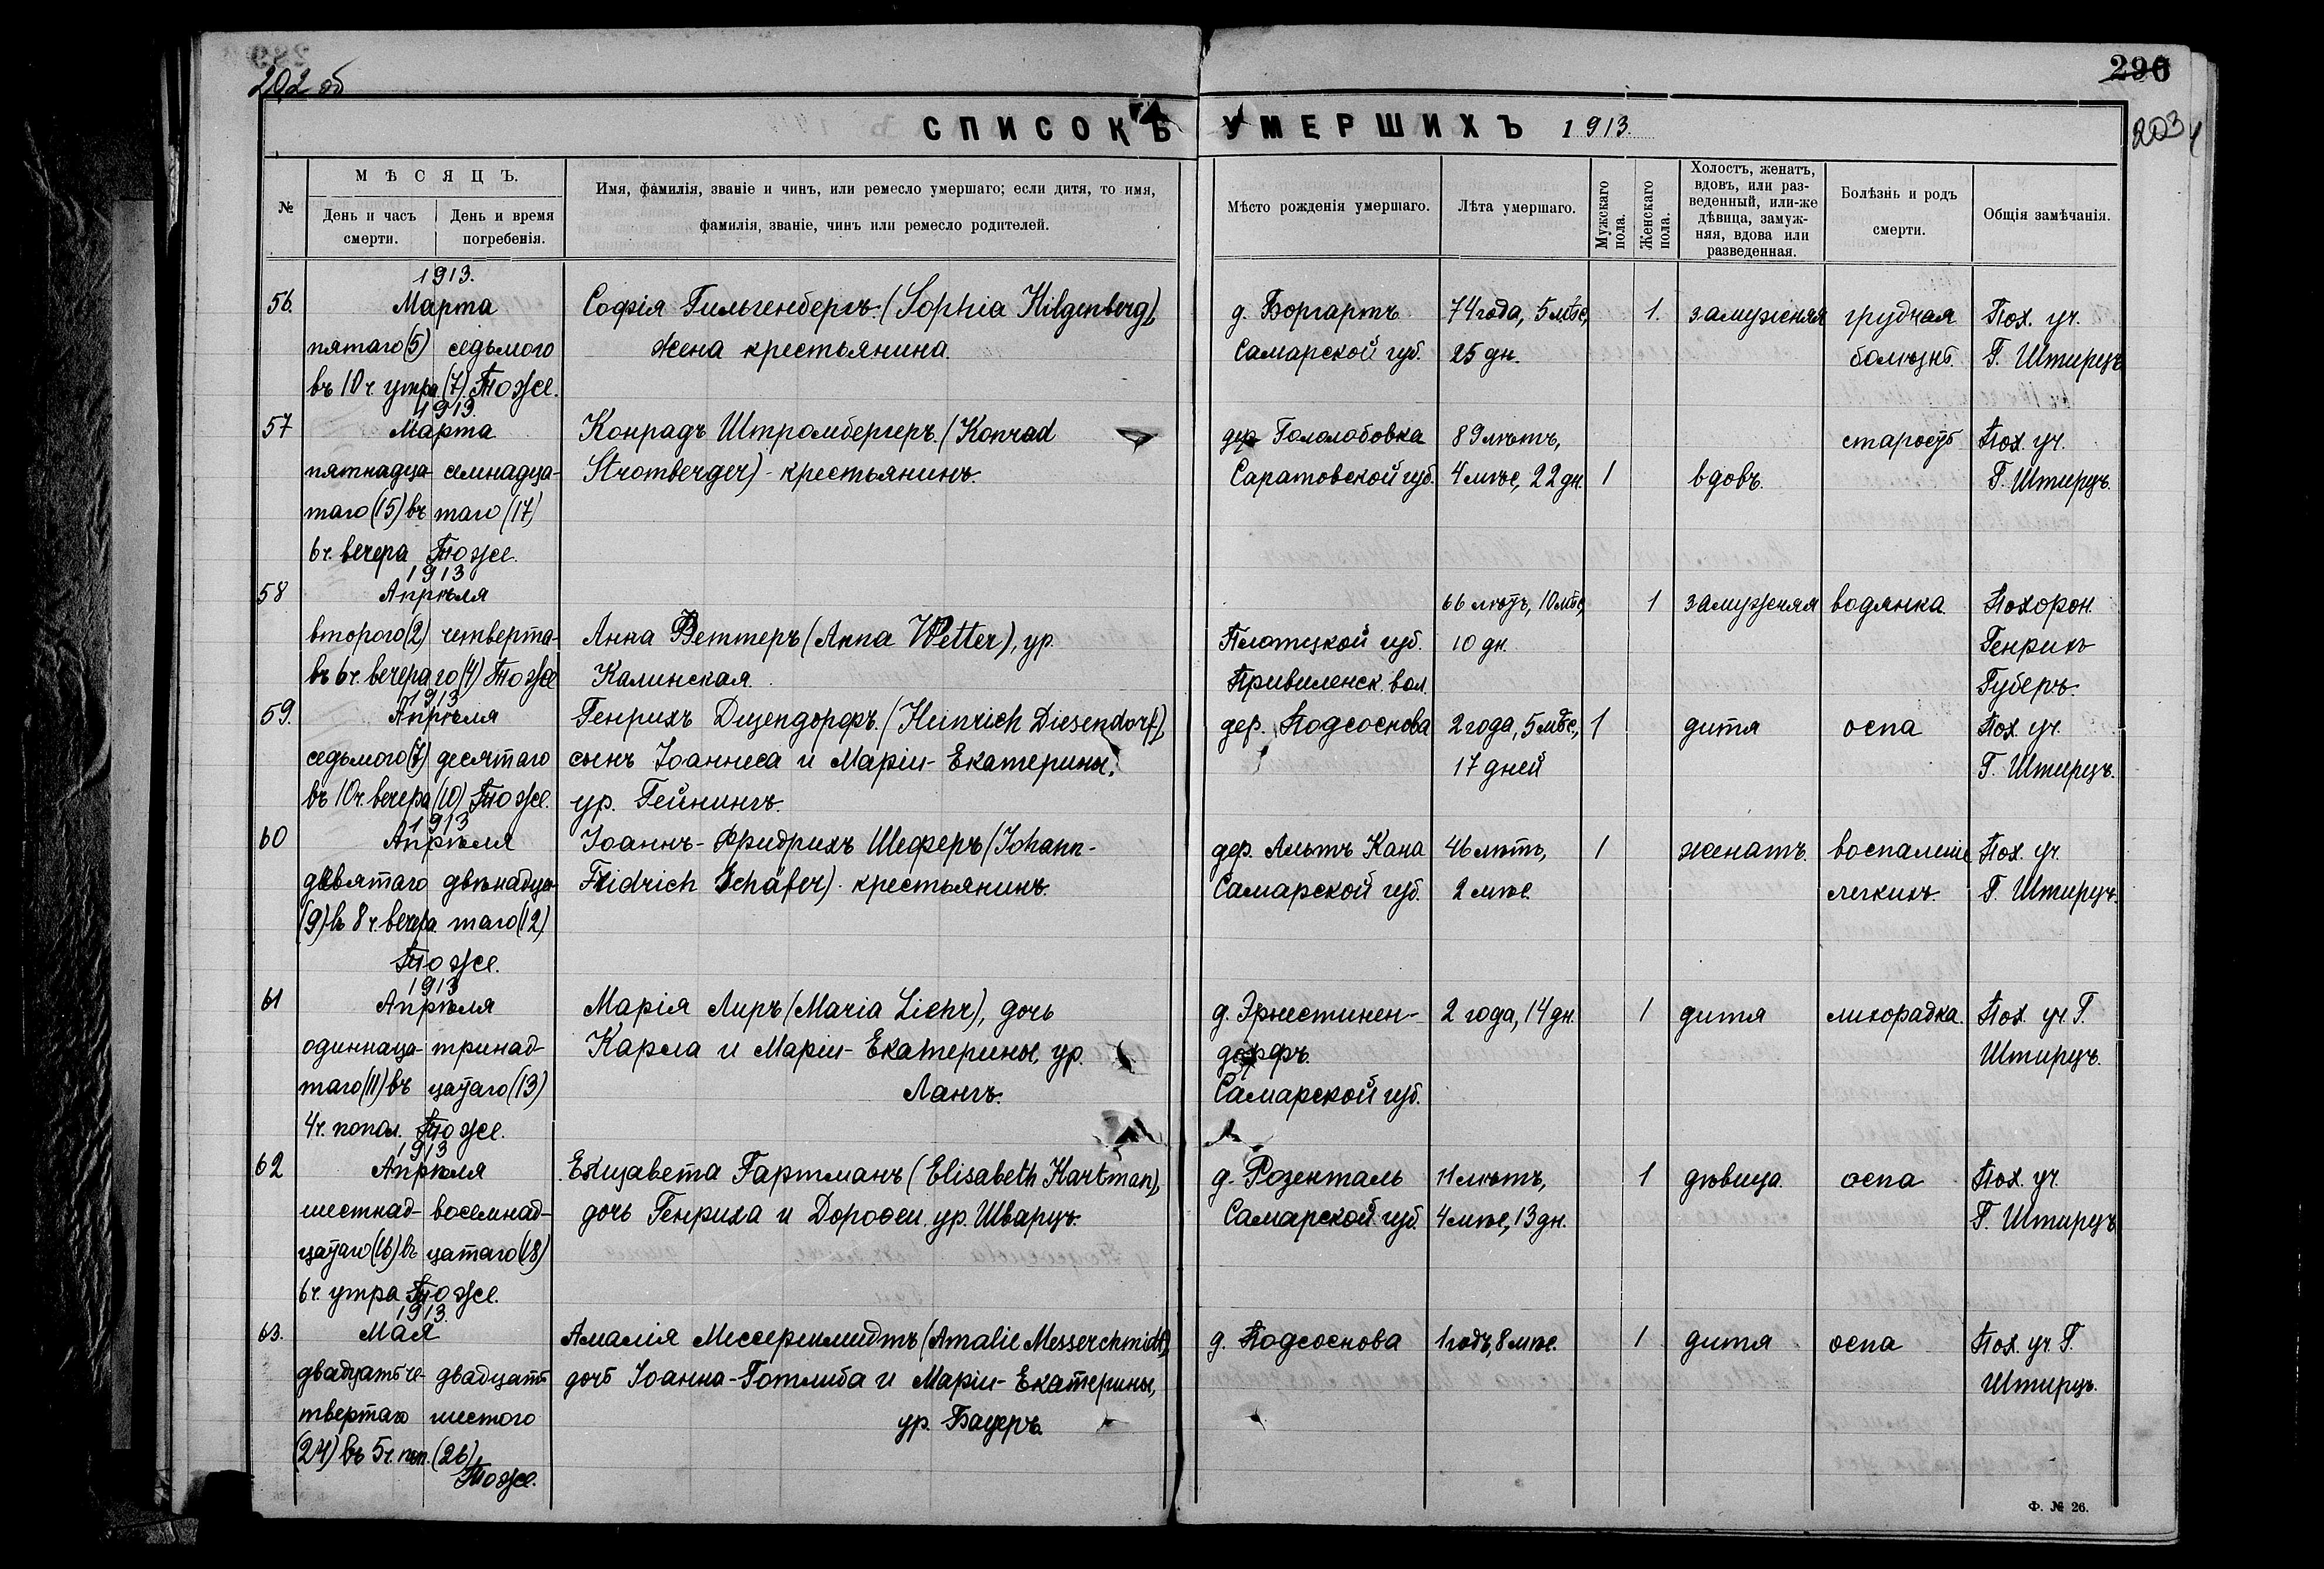 202 об
290
203
СПИСОКЪ УМЕРШИХЪ 1913.
№
МѢСЯЦЪ.
День и часъ смерти.
День и время погребенія.
Имя, фамилія, званіе и чинъ, или ремесло умершаго; если дитя, то имя,
фамилія, званіе, чинъ или ремесло родителей.
Мѣсто рожденія умершаго.
Лѣта умершаго.
Мужскаго пола.
Женскаго пола.
Холостъ, женатъ,
вдовъ, или раз-
веденный, или-же
дѣвица, замуж-
няя, вдова или
разведенная.
Болѣзнь и родъ
смерти.
Общія замѣчанія.
1913.
56. Марта Софія Гильгенбергъ. (Sophia Hilgenberg), д. Боргартъ 74 года, 5 мѣс, 1. замужняя грудная Пох. уч.
пятаго (5) седьмого жена крестьянина. Самарской губ. 25 дн. болѣзнь. Г. Штирцъ
въ 10 ч. утра (7) Тоже.
1913.
57 Марта Конрадъ Штромбергеръ. (Konrad дер. Гололобовка 89 лѣтъ, старость Пох. уч.
пятнадца- семнадца- Stromberger) - крестьянинъ. Саратовской губ. 4 мѣс, 22 дн. 1 вдовъ. Г. Штирцъ.
таго (15) въ таго (17)
6 ч. вечера Тоже.
1913
58 Апрѣля 66 лѣтъ, 10 мѣс, 1 замужняя водянка Похорон.
второго (2) четверта- Анна Веттеръ (Anna Wetter), ур. Плотцкой губ. 10 дн. Генрихъ
въ 6 ч. вечера го (4) Тоже Калинская. Привиленск. вол. Губеръ.
1913
59. Апрѣля Генрихъ Дизендорфъ. (Heinrich Diesendorf), дер. Подсоснова 2 года, 5 мѣс, 1 дитя оспа Пох. уч.
седьмого (7) десятаго сынъ Іоаннеса и Маріи-Екатерины, 17 дней Г. Штирцъ.
въ 10 ч. вечера (10) Тоже. ур. Гейнингъ.
1913
60 Апрѣля Іоаннъ-Фридрихъ Шеферъ (Johann- дер. Альтъ Кана 46 лѣтъ, 1 женатъ. воспаленіе Пох. уч.
девятаго двѣнадца- Fridrich Schäfer) - крестьянинъ. Самарской губ. 2 мѣс. легкихъ. Г. Штирцъ.
(9) въ 8 ч. вечера таго (12)
Тоже.
1913
61 Апрѣля Марія Лиръ (Maria Liehr), дочь д. Эрнестинен- 2 года, 14 дн. 1 дитя лихорадка. Пох. уч. Г.
одиннаца- тринад- Карла и Маріи-Екатерины, ур. дорфъ. Штирцъ.
таго (11) въ цатаго (13) Лангъ. Самарской губ.
4 ч. попол. Тоже.
1913
62 Апрѣля Елизавета Гартманъ (Elisabeth Hartman), д. Розенталь 11 лѣтъ, 1 дѣвица. оспа Пох. уч.
шестнад- восемнад- дочь Генриха и Доротеи, ур. Шварцъ. Самарской губ. 4 мѣс, 13 дн. Г. Штирцъ
цатаго (16) въ цатаго (18)
6 ч. утра Тоже.
1913.
63. Мая Амалія Мессершмидтъ (Amalie Messerchmidt), д. Подсоснова 1 годъ, 8 мѣс. 1 дитя оспа Пох. уч. Г.
двадцать че- двадцать дочь Іоанна-Готлиба и Маріи-Екатерины, Штирцъ.
твертаго шестого ур. Бауеръ.
(24) въ 5 ч. поп. (26),
Тоже.
Ф. № 26.